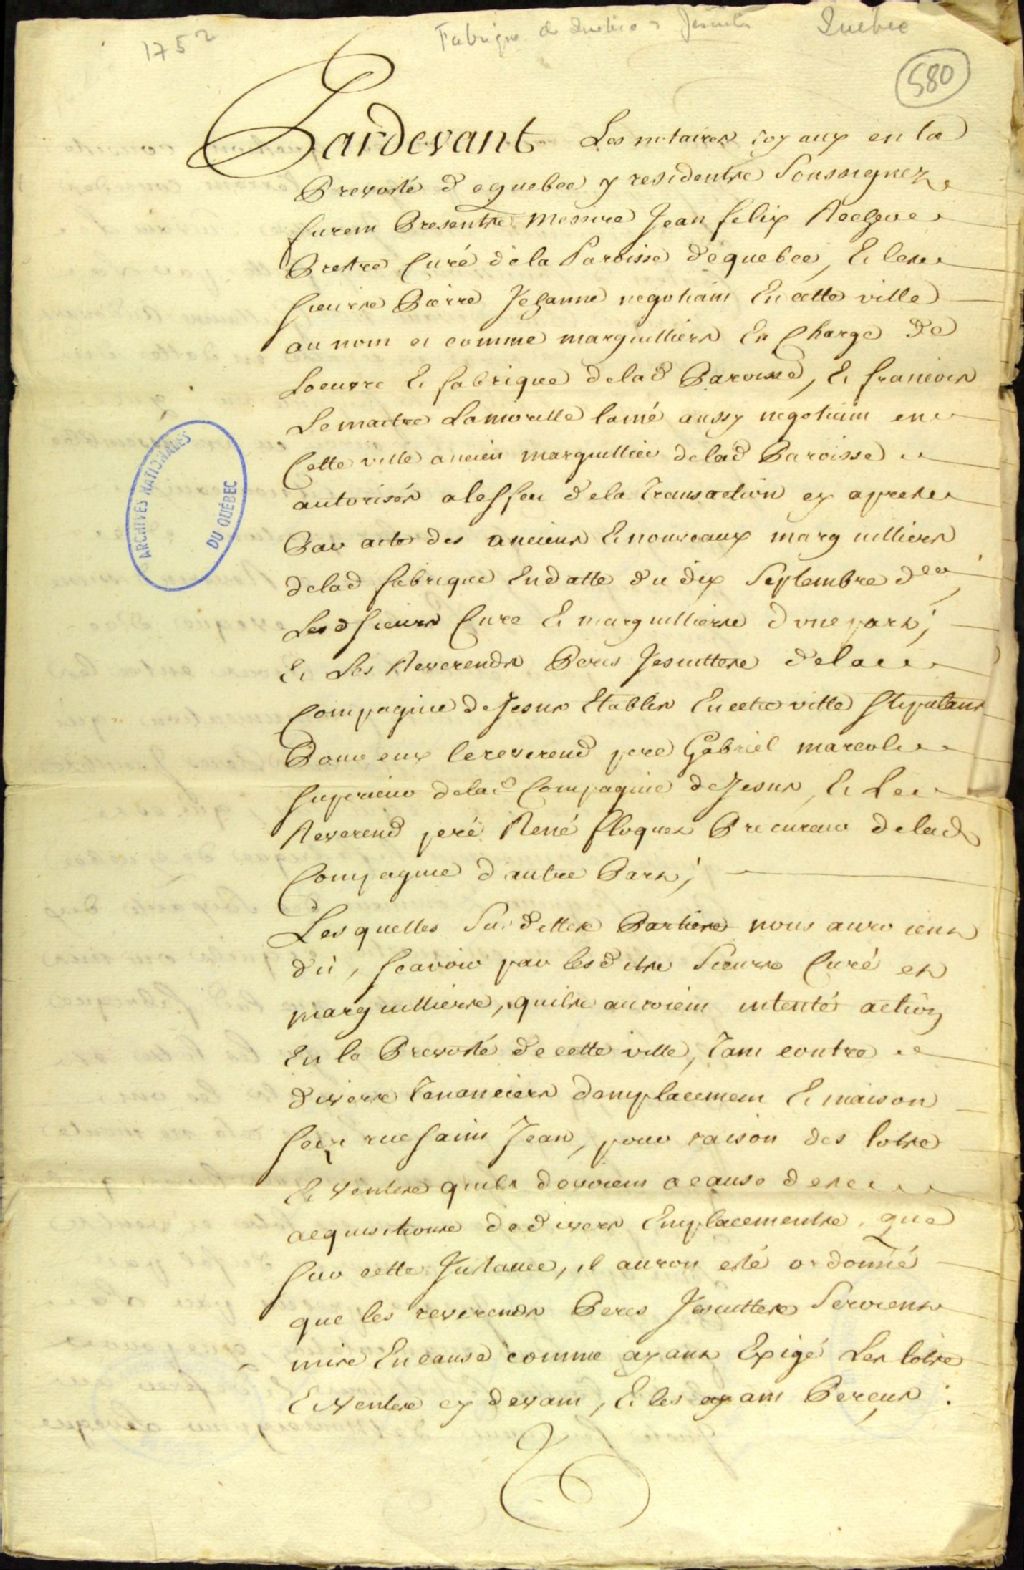 1752
Fabrique de Québec & Jésuites
Quebec
580
Pardevant Les notaires royaux en la
Prevosté de quebec y residents Soussignez
furent Presents Messire Jean felix Recher
Prestre Curé de la Paroisse de quebec, Et les
sieurs Pierre Jehanne negotiant En cette ville
au nom et comme marguilliers En Charge de
Loeuvre Et fabrique de lad Paroisse, Et francois
Lemaitre Lamorille lainé aussy negotiant en
Cette ville ancien marguillier de lad Paroisse
autorisés a leffet de la transaction cy apres
Par acte des anciens Et nouveaux marguilliers
de lad fabrique En datte du dix Septembre der
Lesd sieurs Curé Et marguilliers dune part;
Et Les Reverends Peres Jesuittes de la
Compagnie de Jesus Etablis En cette ville stipulant
Pour eux le reverend pere Gabriel marcol
superieur de lad Compagnie de Jesus, Et Le
Reverend peré René floquet Procureur de lad
Compagnie d'autre Part;
Lesquelles Susdittes Parties nous auroient
dit, scavoir par lesdits Sieurs Curé et
marguilliers, quils auroient intenté action
En la Prevosté de cette ville, tant contre
divers tenanciers demplacement Et maison
scize rue saint Jean, pour raison des lots
Et Ventes quils devoient a cause des
acquisitions de divers Emplacements, que
sur cette Instance, il auroit esté ordonné
que les reverends Peres Jesuittes Seroient
mis En cause comme ayant Exigé Les lots
Et Ventes cy devant, Et les ayant Perçus:
ARCHIVES NATIONALES
DU QUÉBEC